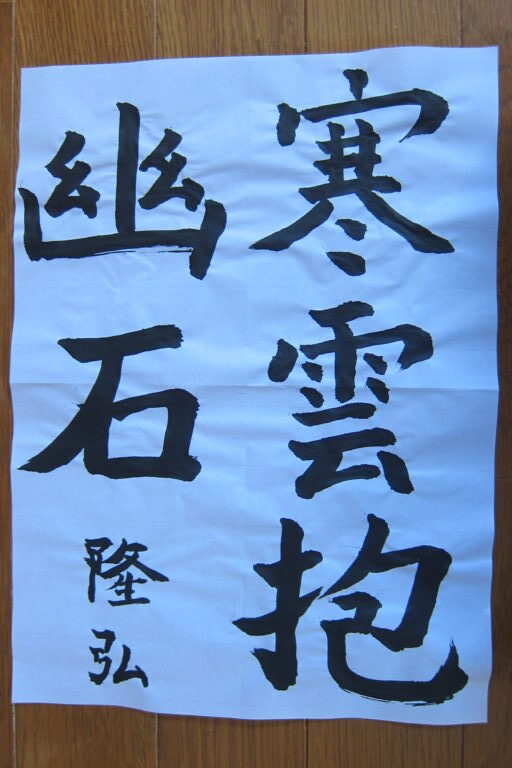 寒雲抱
幽石
隆弘